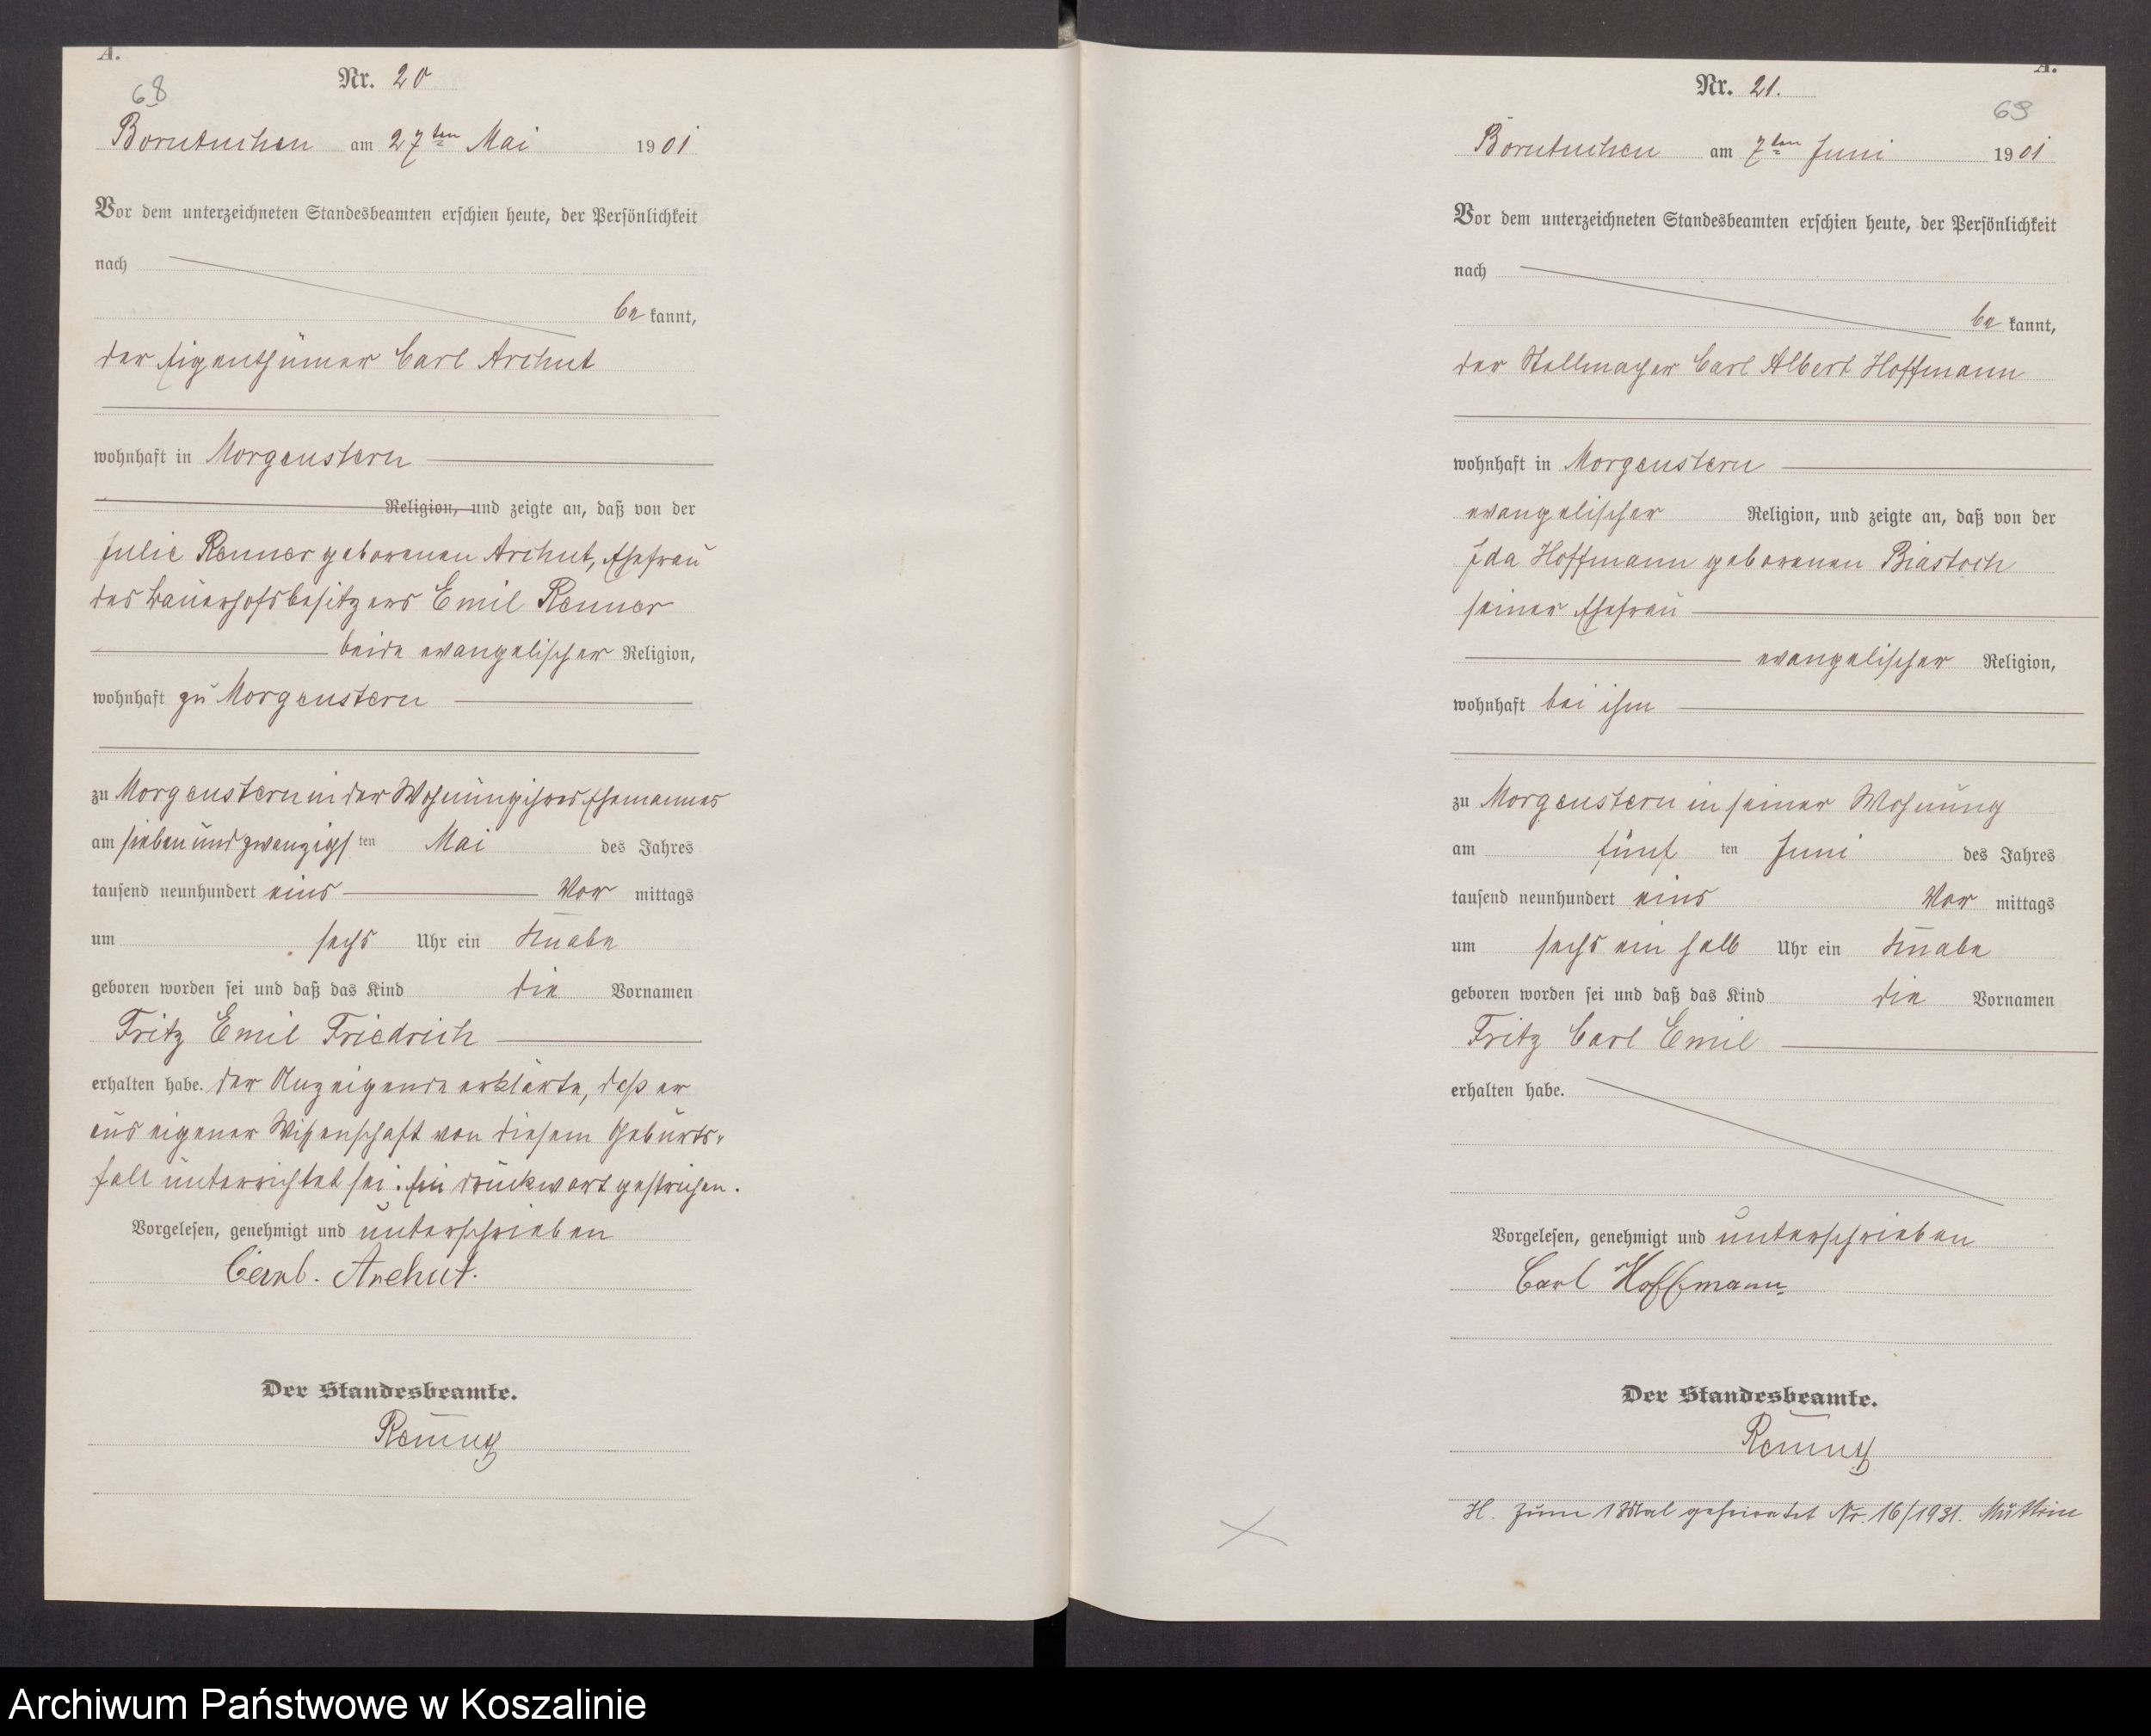 A.
68
Nr. 20
Borntuchen am 27ten Mai 1901
Vor dem unterzeichneten Standesbeamten erschien heute, der Persönlichkeit
nach
be kannt,
der Eigenthümer Carl Archut
wohnhaft in Morgenstern
Religion, und zeigte an, daß von der
Julie Renner geborenen Archut, Ehefrau
des Bauerhofsbesitzers Emil Renner
beide evangelischer Religion,
wohnhaft zu Morgenstern
zu Morgenstern in der Wohnung ihres Ehemannes
am sieben und zwanzigs ten Mai des Jahres
tausend neunhundert eins Vor mittags
um sechs Uhr ein Knabe
geboren worden sei und daß das Kind die Vornamen
Fritz Emil Friedrich
erhalten habe. Der Anzeigende erklärte, daß er
aus eigener Wissenschaft von diesem Geburts-
fall unterrichtet sei. Ein Druckwort gestrichen.
Vorgelesen, genehmigt und unterschrieben
Carl. Archut.
Der Standesbeamte.
A.
69
Nr. 21.
Borntuchen am 7ten Juni 1901
Vor dem unterzeichneten Standesbeamten erschien heute, der Persönlichkeit
nach
be kannt,
der Stellmacher Carl Albert Hoffmann
wohnhaft in Morgenstern
evangelischer Religion, und zeigte an, daß von der
Ida Hoffmann geborenen Biastoch
seiner Ehefrau
evangelischer Religion,
wohnhaft bei ihm
zu Morgenstern in seiner Wohnung
am fünf ten Juni des Jahres
tausend neunhundert eins Vor mittags
um sechs ein halb Uhr ein Knabe
geboren worden sei und daß das Kind die Vornamen
Fritz Carl Emil
erhalten habe.
Vorgelesen, genehmigt und unterschrieben
Carl Hoffmann
Der Standesbeamte.
H. Zum 1 Mal geheiratet Nr. 16/1931. Müttrin
Archiwum Państwowe w Koszalinie